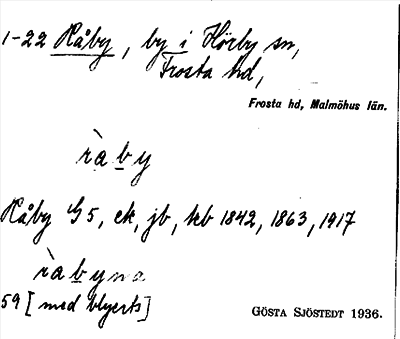 1-22 Råby, by i Hörby sn,
Frosta hd,
Frosta hd, Malmöhus län.
ràby
Råby G5, ek, jb, kb 1842, 1863, 1917
ràbyna
59 [med blyerts]
GÖSTA SJÖSTEDT 1936.